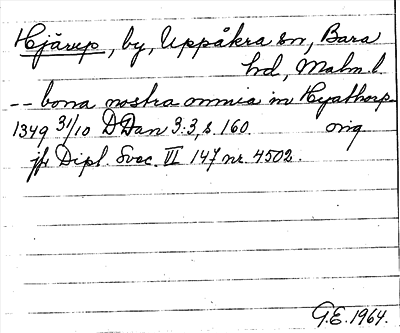 Hjärup, by, Uppåkra sn, Bara
hd, Malm. l.
-- bona nostra omnia in Hyathorp
1349 31/10 DDan 3:3, s. 160. orig
jfr Dipl. Svec. VI 147 nr. 4502.
G.E. 1964.